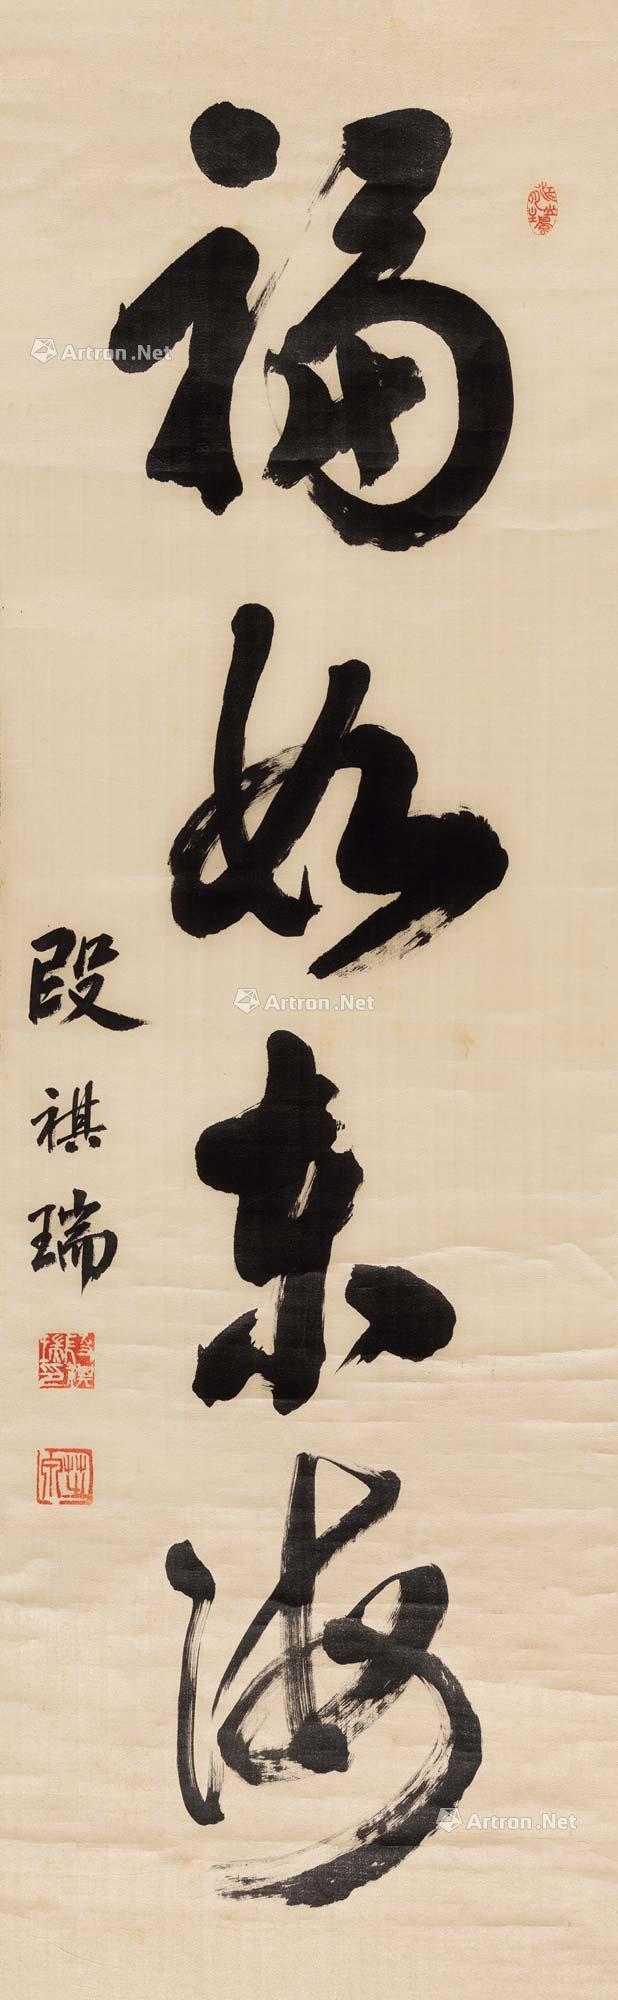 福如东海
段祺瑞
段祺瑞印
芝泉
Artron.Net
Artron.Net
Artron.Net